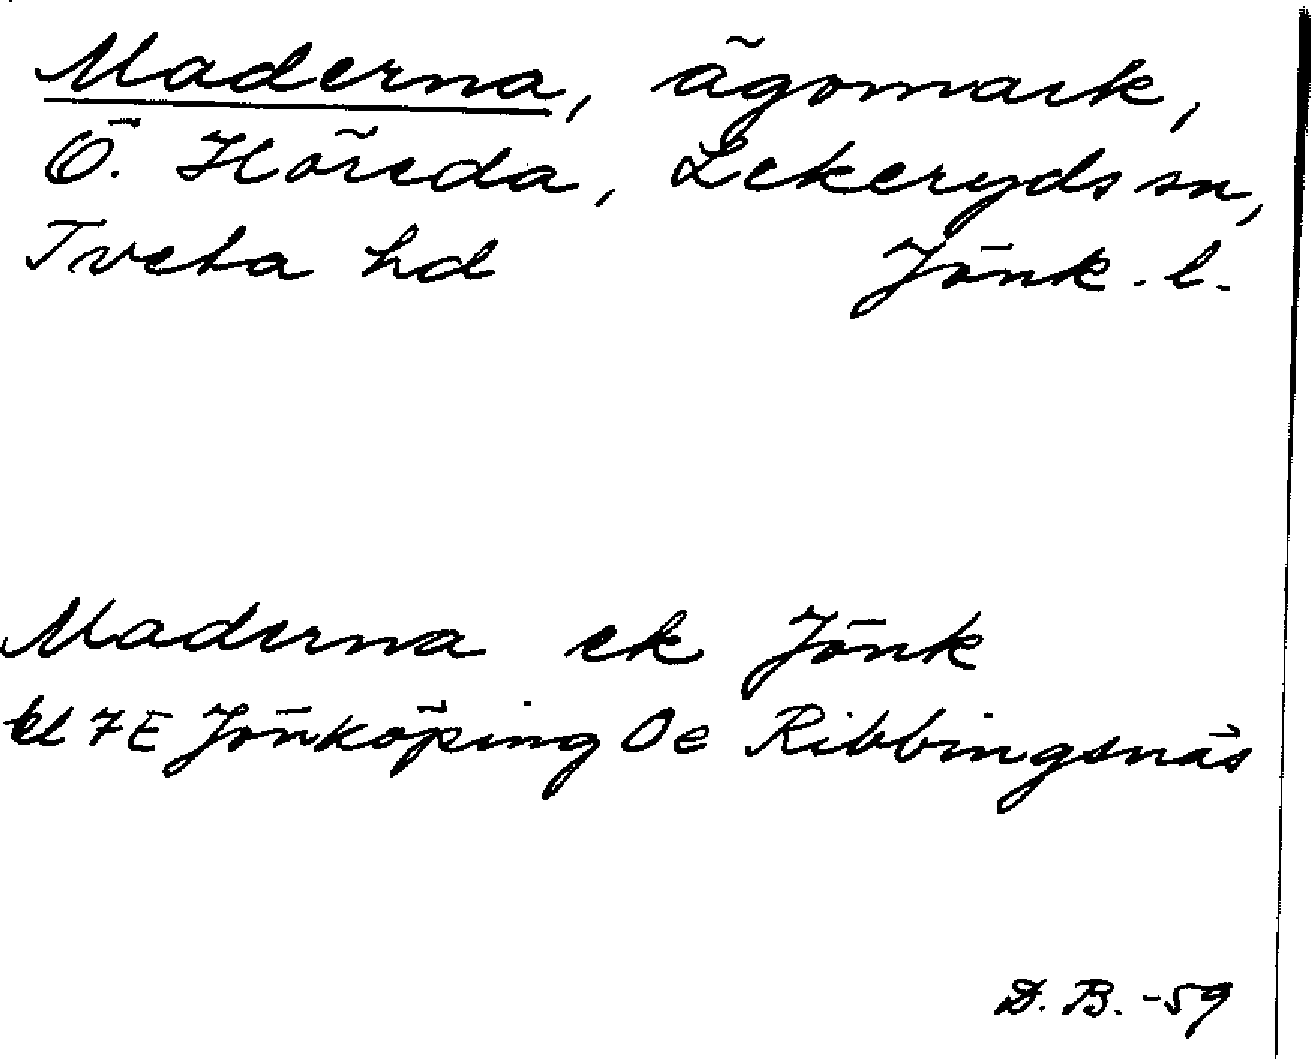 Maderna, ägomark,
Ö. Höreda, Lekeryds sn,
Tveta hd Jönk. l.
Maderna ek Jönk
bl 7E Jönköping 0e Ribbingsnäs
D. B. -59